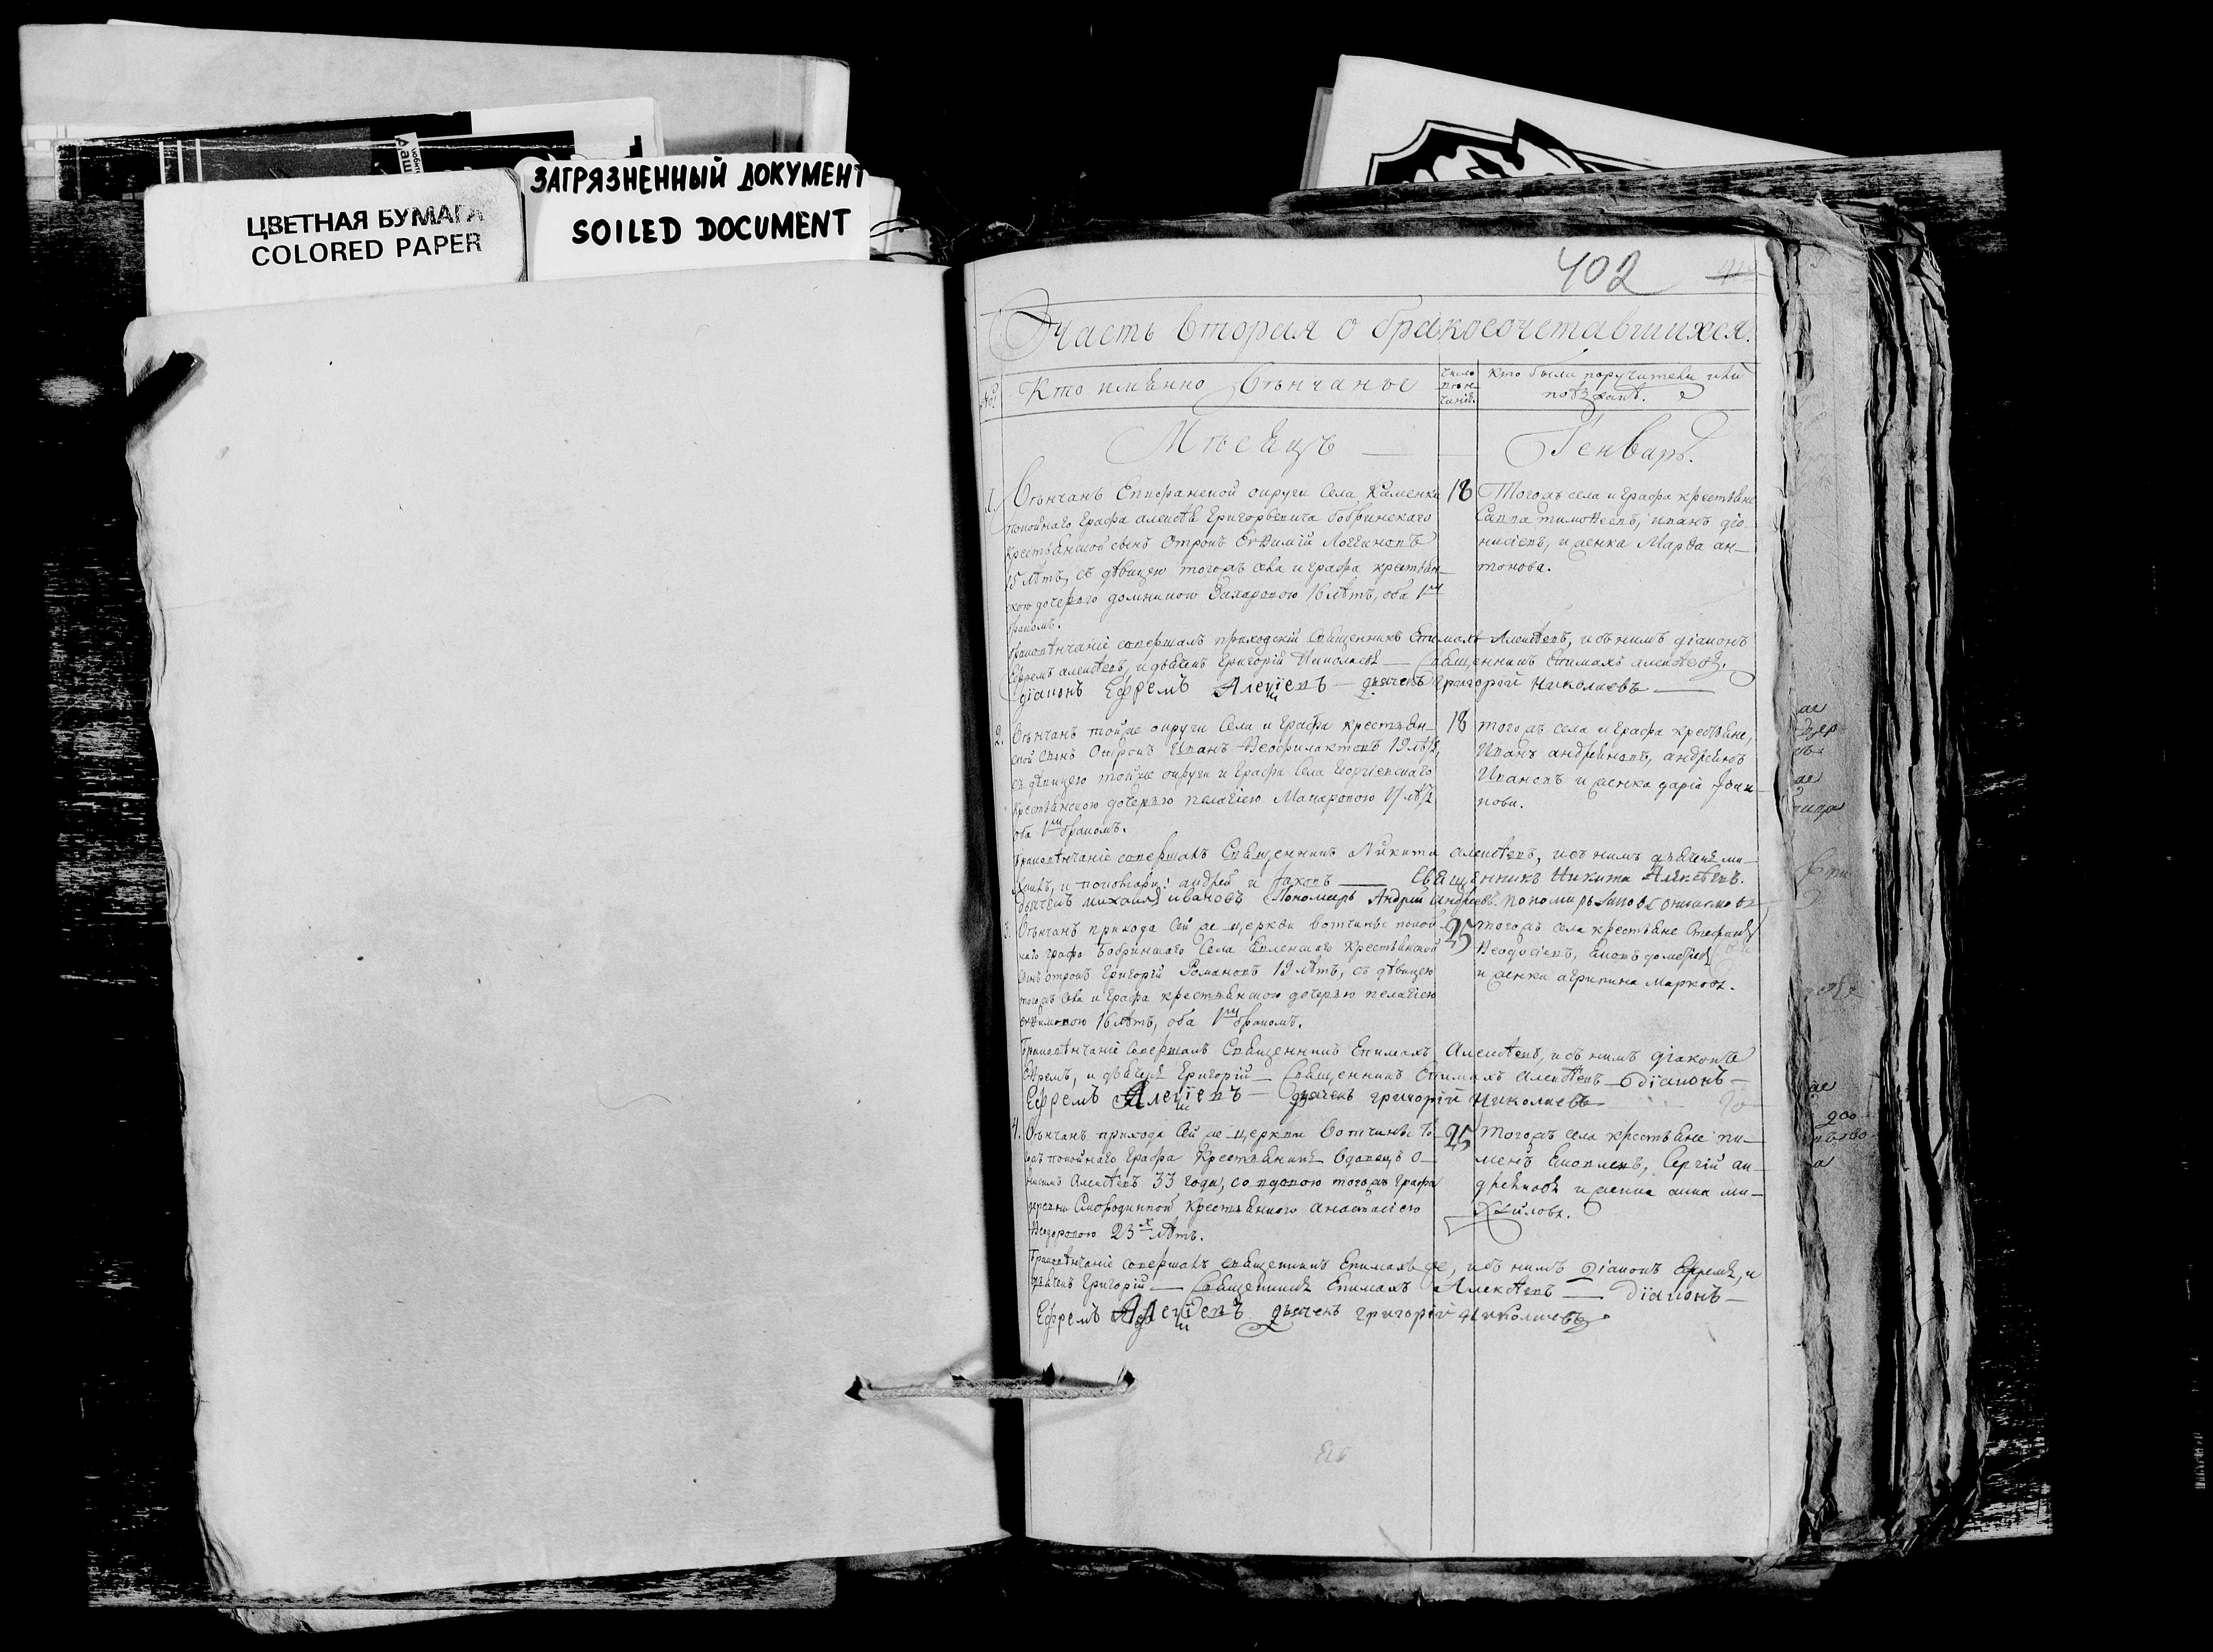 ЗАГРЯЗНЕННЫЙ ДОКУМЕНТ
SOILED DOCUMENT
ЦВЕТНАЯ БУМАГА
COLORED PAPER
402
Часть вторая о бракосочетавшихся.
Кто имянно Венчаные
число венчаній.
Кто были поручители или поѣзжанѣ.
Месяцъ Генварь.
1. Венчанъ Епифанской округи Села Каменки
покойнаго Графа алексѣя Григорьевича бобринскаго
крестьянской сынъ Отрокъ Евѳимій Логгиновъ
15 лѣтъ, съ дѣвицею тогожъ села и графа крестьян-
скою дочерью домникою Захаровою 16 лѣтъ, оба 1мъ
бракомъ.
18
Тогожъ села и Графа крестьяне
Савва тимоѳеевъ, иванъ діо-
нисіевъ, и женка Марѳа ан-
тонова.
браковѣнчаніе совершалъ приходскій Священникъ Епимахъ Алексѣевъ, и съ нимъ діаконъ
Ефремъ алексѣевъ, и дьячекъ Григорій Николаевъ — Священникъ Епимахъ алексѣевъ.
діаконъ Ефремъ Алексіевъ — дьячекъ Григорій Николаевъ —
2. Венчанъ тойже округи Села и Графа крестьян-
ской сынъ Отрокъ Иванъ Ѳеофилактовъ 19 лѣтъ,
съ дѣвицею тойже округи и Графа Села Георгіевскаго
крестьянскою дочерью пелагіею Макаровою 17 лѣтъ
оба 1мъ бракомъ.
18
тогожъ села и Графа крестьяне,
Иванъ андреяновъ, андреянъ
Ивановъ и женка дарія
браковѣнчаніе совершалъ Священникъ Никита алексѣевъ, и съ нимъ дьячекъ ми-
хаилъ, и пономари: андрей и Іаковъ — Священникъ Никита Алексѣевъ.
дьячекъ михаилъ ивановъ Пономарь Андрей Андреевъ. пономарь Іаковъ
3. Венчанъ прихода Сей же церкви вотчины покой-
наго графа бобринскаго Села крестьянской
сынъ отрокъ Григорій Романовъ 19 лѣтъ, съ дѣвицею
тогожъ села и Графа крестьянскою дочерью пелагіею
16 лѣтъ, оба 1мъ бракомъ.
25
тогожъ села крестьяне Стефанъ
Ѳеодосіевъ,
и женка агрипина Маркова.
браковѣнчаніе совершалъ Священникъ Епимахъ Алексѣевъ, и съ нимъ діаконъ
Ефремъ, и дьячекъ Григорій — Священникъ Епимахъ алексѣевъ — діаконъ —
Ефремъ Алексіевъ — дьячекъ григорій николаевъ
4. Венчанъ прихода Сей же церкви вотчины то-
гожъ покойнаго Графа крестьянинъ вдовецъ О-
нисимъ Алексѣевъ 33 года, со вдовою тогожъ Графа
деревни Смородинной крестьянкою анастасіею
Ѳеодоровою 23х лѣтъ.
25
Тогожъ села крестьяне пи-
менъ Сергій ан-
дреяновъ и женка анна ми-
хайлова.
браковѣнчаніе совершалъ священникъ Епимахъ же, и съ нимъ Діаконъ Ефремъ, и
дьячекъ Григорій — Священникъ Епимахъ Алексѣевъ — Діаконъ —
Ефремъ Алексіевъ дьячекъ григорій николаевъ